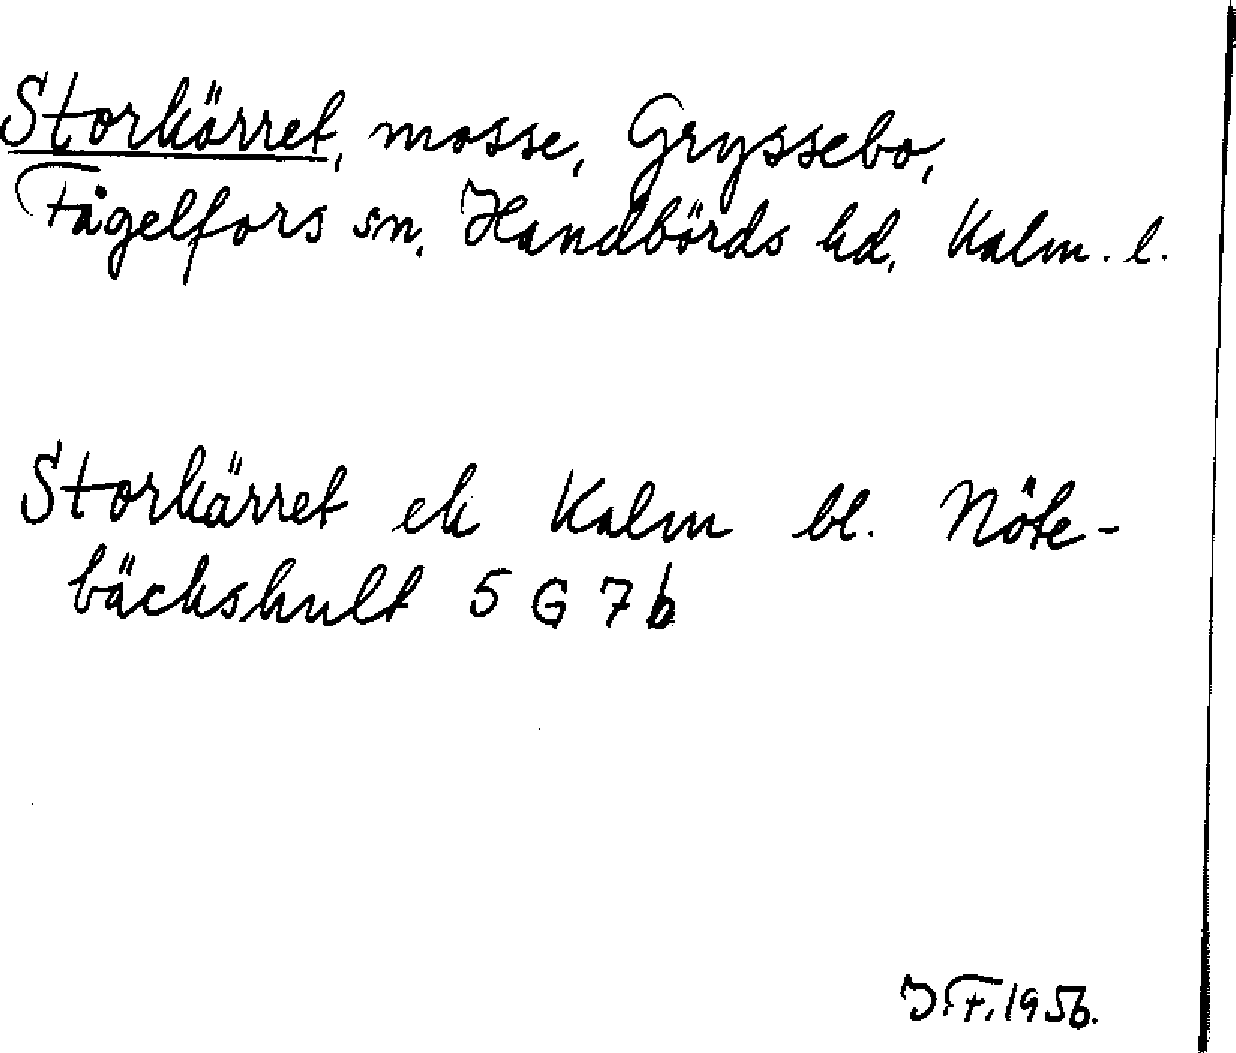 Storkärret, mosse, Gryssebo,
Fågelfors sn, Handbörds hd, Kalm. l.
Storkärret ek Kalm bl. Nöte-
bäckshult 5 G 7 b
J.F. 1956.